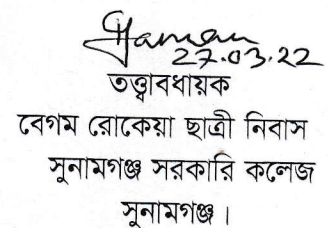 27.03.22
তত্ত্বাবধায়ক
বেগম রোকেয়া ছাত্রী নিবাস
সুনামগঞ্জ সরকারি কলেজ
সুনামগঞ্জ।